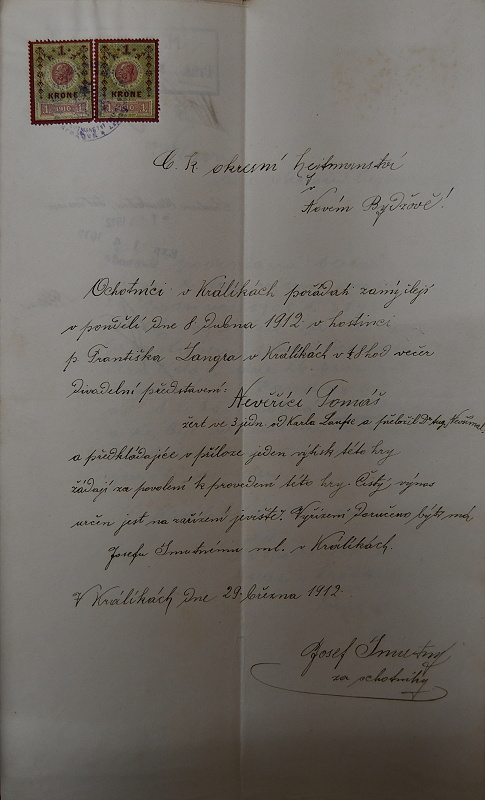 1 1
KRONE KRONE
1 1910 1 1 1910 1
C. k. okresní hejtmanství
v
Novém Bydžově!
Ochotníci v Králíkách pořádati zamýšlejí
v pondělí dne 8. dubna 1912 v hostinci
p. Františka Langra v Králíkách v ½8 hod večer
divadelní představení: Nevěřící Tomáš
žert ve 3 jedn. od Karla Laufse a přeložil Dr.
a předkládajíce v příloze jeden výtisk této hry
žádají za povolení k provedení této hry. Čistý výnos
určen jest na zařízení jeviště. Vyřízení doručeno býti má
Josefu Smutnému ml. v Králíkách.
V Králíkách, dne 29. března 1912.
Josef Smutný
za ochotníky